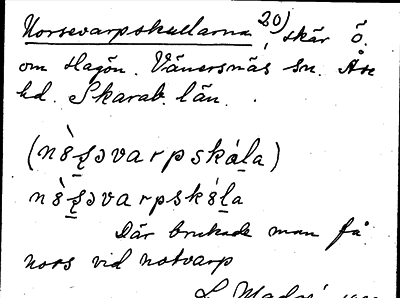 Norsevarpskullarna 20), skär ö.
om Hagön. Vänersnäs sn. Åse
hd. Skarab. län.
(nɞ̀ʂəvarpskála)
nɞ̀ʂəvarpskɞ́l̠a
Där brukade man få
nors vid notvarp